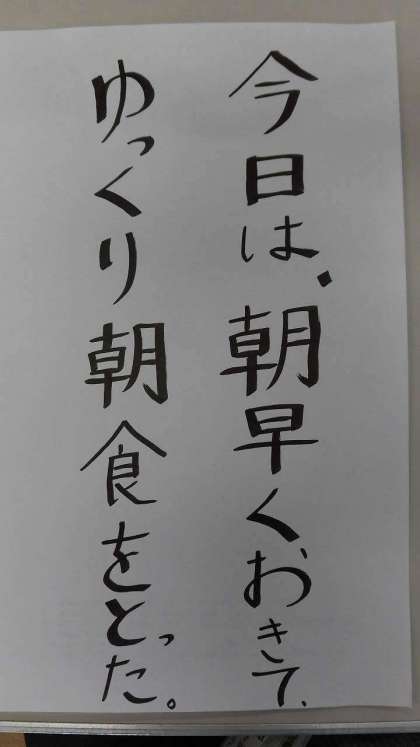 今日は、朝早くおきて、
ゆっくり朝食をとった。